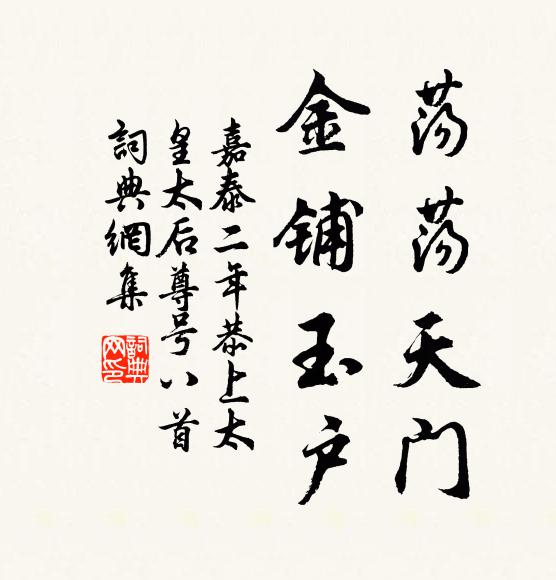 荡荡天门
金铺玉户
嘉泰二年恭上太
皇太后尊号八首
词典網集
詞典网印